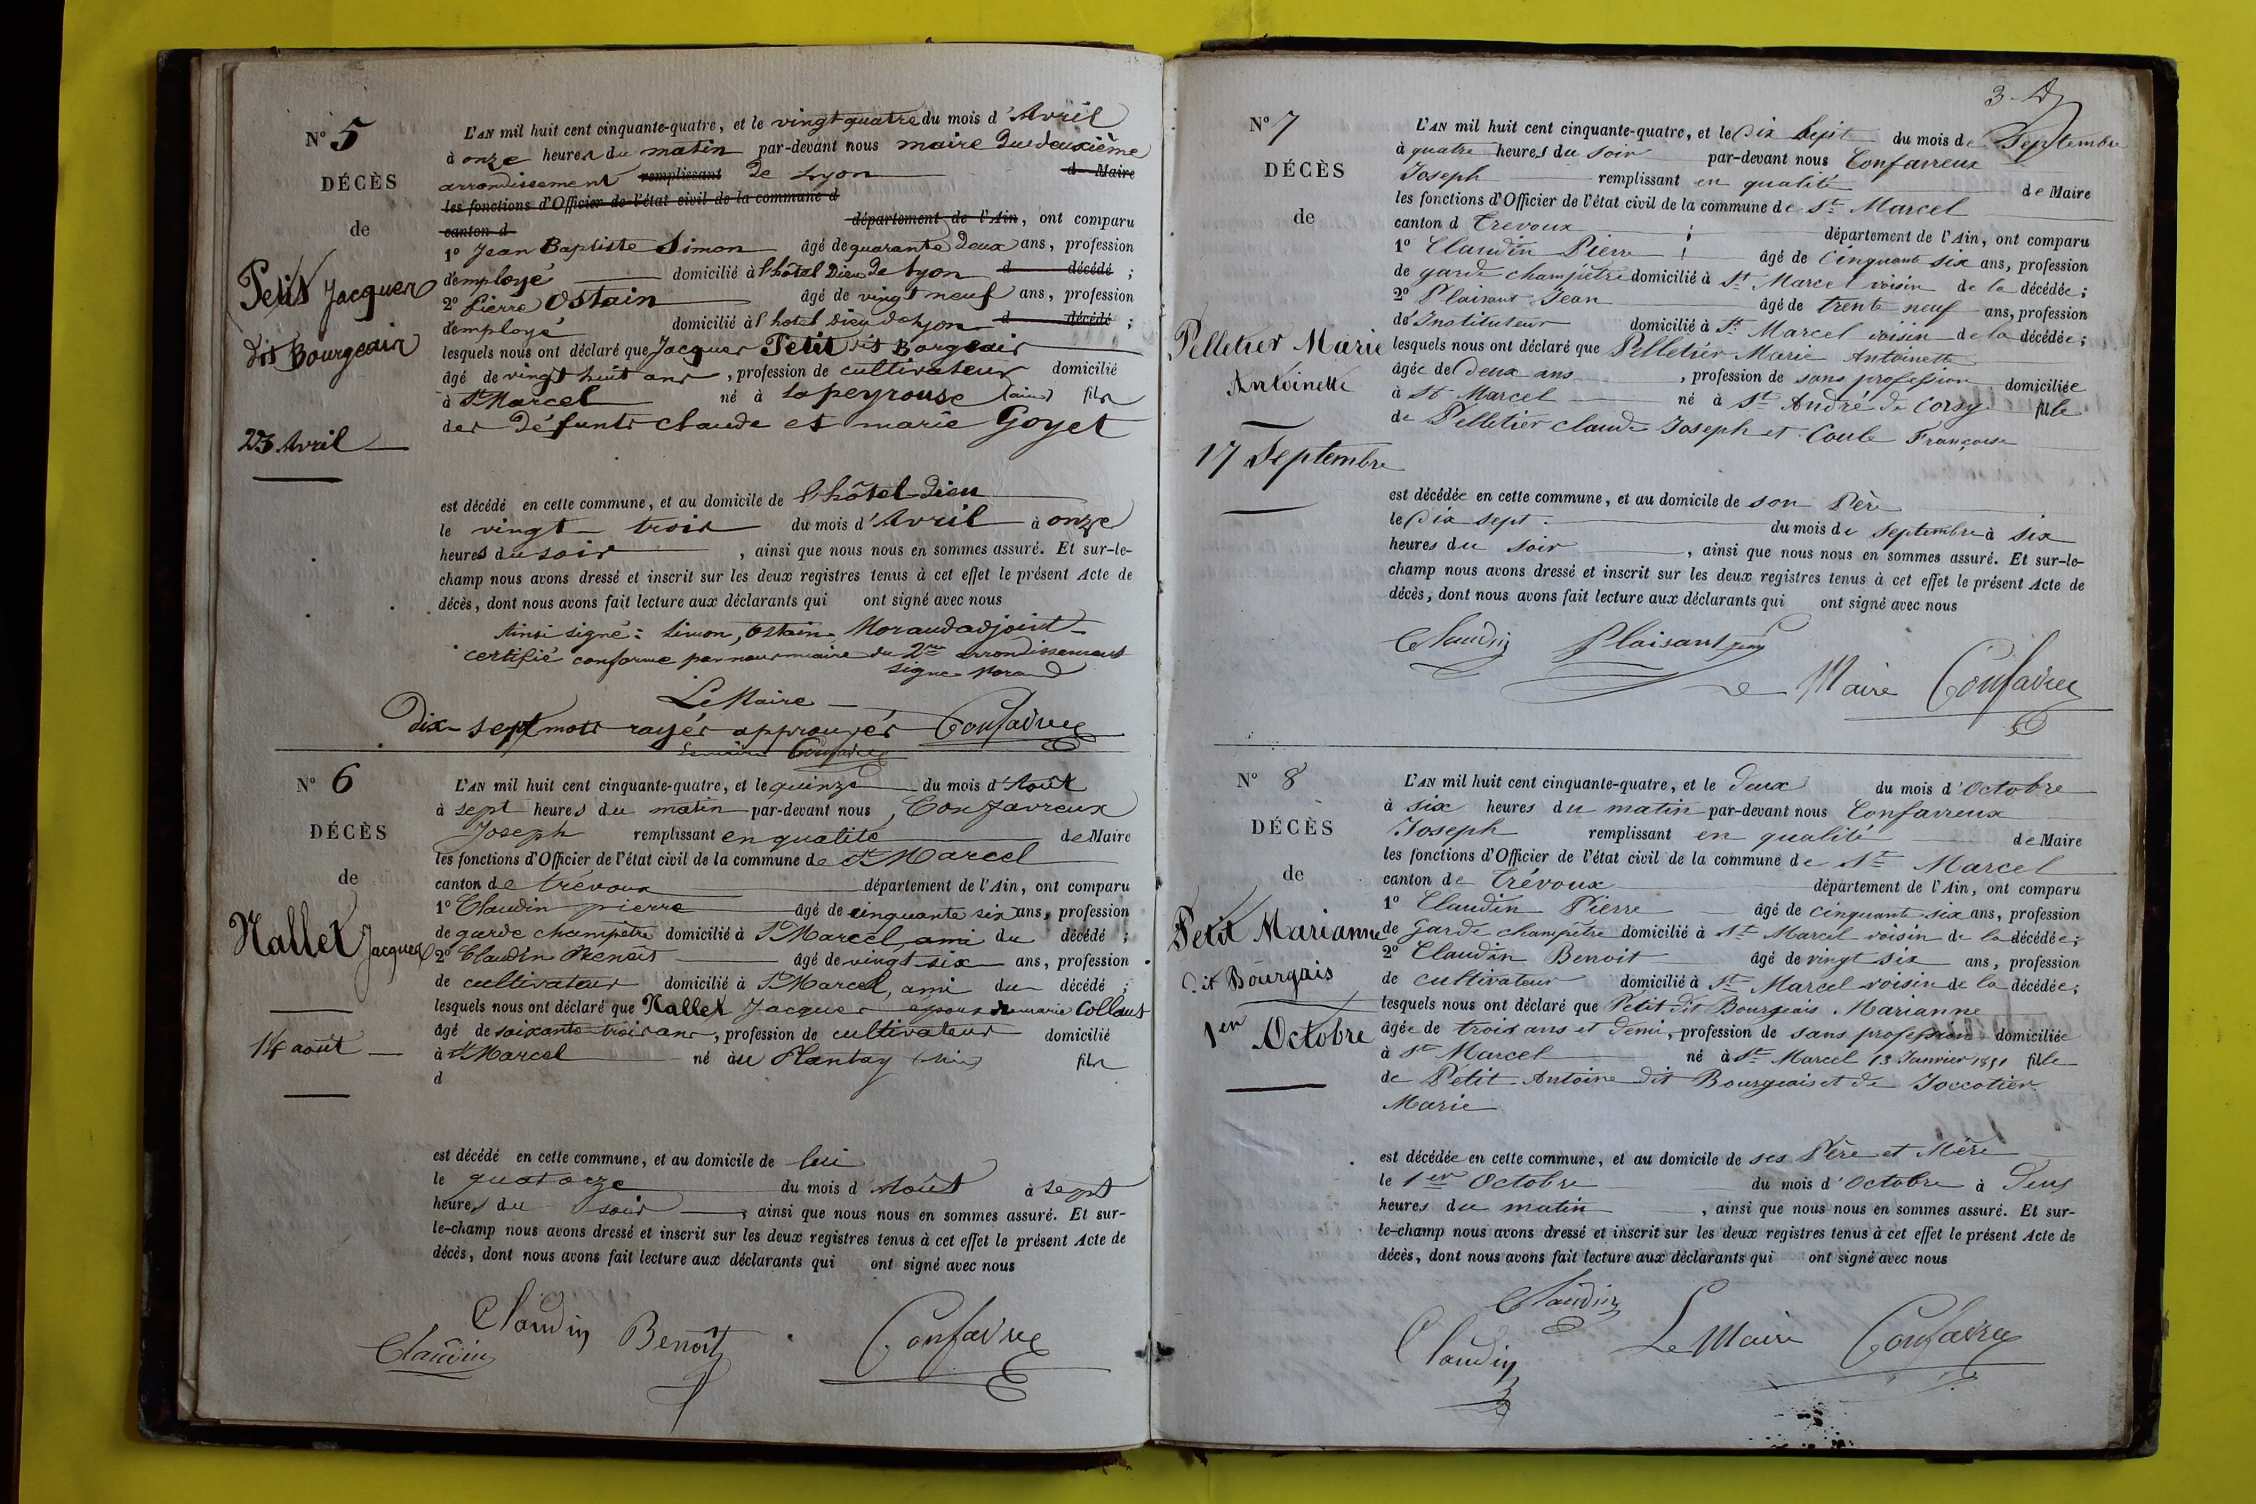 N° 5
DÉCÈS
de
Petit Jacques
dit Bourgeais
23 Avril
L'AN mil huit cent cinquante-quatre, et le vingt quatre du mois d'Avril
à onze heures du matin par-devant nous maire du deuxième
arrondissement remplissant de Lyon d Maire
les fonctions d'Officier de l'état civil de la commune d
canton d département de l'Ain, ont comparu
1° Jean Baptiste Simon âgé de quarante deux ans, profession
d'employé domicilié à l'hôtel Dieu de Lyon d décédé ;
2° Pierre Ostain âgé de vingt neuf ans, profession
d'employé domicilié à l'hotel Dieu de Lyon d décédé ;
lesquels nous ont déclaré que Jacques Petit dit Bourgeais
âgé de vingt huit ans, profession de cultivateur domicilié
à St Marcel né à Lapeyrouse (ain) fils
des défunts claude et marie Goyet
est décédé en cette commune, et au domicile de l'hôtel-Dieu
le vingt trois du mois d'Avril à onze
heures du soir, ainsi que nous nous en sommes assuré. Et sur-le-
champ nous avons dressé et inscrit sur les deux registres tenus à cet effet le présent Acte de
décès, dont nous avons fait lecture aux déclarants qui ont signé avec nous
Ainsi signé : Simon, Ostain Morand adjoint
certifié conforme par nous maire du 2me arrondissement
signé Morand
Le Maire
Dix-sept mots rayés approuvés Confavreux
N° 6
DÉCÈS
de
Nallet Jacques
14 août
L'AN mil huit cent cinquante-quatre, et le quinze du mois d'Août
à sept heures du matin par-devant nous Confavreux
Joseph remplissant en qualité de Maire
les fonctions d'Officier de l'état civil de la commune de St Marcel
canton de trévoux département de l'Ain, ont comparu
1° Claudin pierre âgé de cinquante six ans, profession
de garde champetre domicilié à St Marcel, ami du décédé ;
2° Claudin Benoit âgé de vingt six ans, profession
de cultivateur domicilié à St Marcel, ami du décédé ;
lesquels nous ont déclaré que Nallet Jacques epoux de marie Collaut
âgé de soixante trois ans, profession de cultivateur domicilié
à St Marcel né au Plantay (Ain) fils
d
est décédé en cette commune, et au domicile de lui
le quatorze du mois d Août à sept
heures du soir, ainsi que nous nous en sommes assuré. Et sur-
le-champ nous avons dressé et inscrit sur les deux registres tenus à cet effet le présent Acte de
décès, dont nous avons fait lecture aux déclarants qui ont signé avec nous
Claudin Benoit Confavreux
Claudin
3
N° 7
DÉCÈS
de
Pelletier Marie
Antoinette
17 Septembre
L'AN mil huit cent cinquante-quatre, et le Dix Sept du mois de Septembre
à quatre heures du soir par-devant nous Confavreux
Joseph remplissant en qualité de Maire
les fonctions d'Officier de l'état civil de la commune de St Marcel
canton d Trevoux département de l'Ain, ont comparu
1° Claudin Pierre âgé de Cinquante six ans, profession
de garde champêtre domicilié à St Marcel voisin de la décédée ;
2° Plaisant Jean âgé de trente neuf ans, profession
de Instituteur domicilié à St Marcel voisin de la décédée ;
lesquels nous ont déclaré que Pelletier Marie Antoinette
âgée de Deux ans, profession de sans profession domiciliée
à St Marcel né à St André de Corsy fille
de Pelletier Claude Joseph et Coule Françoise
est décédée en cette commune, et au domicile de son Père
le Dix sept du mois de Septembre à six
heures du soir, ainsi que nous nous en sommes assuré. Et sur-le-
champ nous avons dressé et inscrit sur les deux registres tenus à cet effet le présent Acte de
décès, dont nous avons fait lecture aux déclarants qui ont signé avec nous
Claudin Plaisant
Le Maire Confavreux
N° 8
DÉCÈS
de
Petit Marianne
dit Bourgais
1er Octobre
L'AN mil huit cent cinquante-quatre, et le deux du mois d'Octobre
à six heures du matin par-devant nous Confavreux
Joseph remplissant en qualité de Maire
les fonctions d'Officier de l'état civil de la commune de St Marcel
canton de Trévoux département de l'Ain, ont comparu
1° Claudin Pierre âgé de cinquante six ans, profession
de Garde champetre domicilié à St Marcel voisin de la décédée ;
2° Claudin Benoit âgé de vingt six ans, profession
de cultivateur domicilié à St Marcel voisin de la décédée ;
lesquels nous ont déclaré que Petit dit Bourgeais Marianne
âgée de trois ans et demi, profession de sans profession domiciliée
à St Marcel né à St Marcel 13 Janvier 1851 fille
de Petit Antoine dit Bourgeais et de Joccotier
Marie
est décédée en cette commune, et au domicile de ses Père et Mère
le 1er Octobre du mois d'Octobre à Deux
heures du matin, ainsi que nous nous en sommes assuré. Et sur-
le-champ nous avons dressé et inscrit sur les deux registres tenus à cet effet le présent Acte de
décès, dont nous avons fait lecture aux déclarants qui ont signé avec nous
Claudin
Claudin Le Maire Confavreux